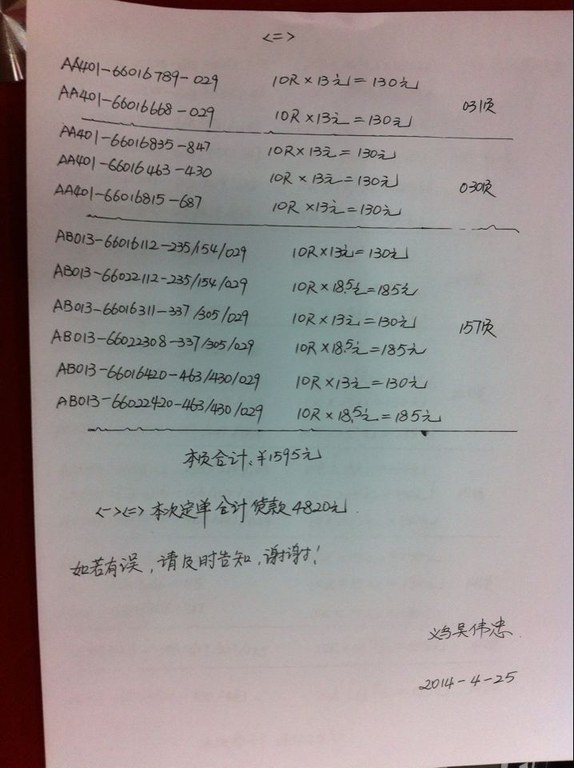 <二>
AA401-66016789-029 10R×13元=130元
AA401-66016668-029 10R×13元=130元 031页
AA401-66016835-847 10R×13元=130元
AA401-66016463-430 10R×13元=130元 030页
AA401-66016815-687 10R×13元=130元
AB013-66016112-235/154/029 10R×13元=130元
AB013-66022112-235/154/029 10R×18.5元=185元
AB013-66016311-337/305/029 10R×13元=130元 157页
AB013-66022308-337/305/029 10R×18.5元=185元
AB013-66016420-463/430/029 10R×13元=130元
AB013-66022420-463/430/029 10R×18.5元=185元
本页合计:¥1595元
<一><二>本次定单合计货款4820元.
如若有误,请及时告知,谢谢!
义乌吴伟忠.
2014-4-25